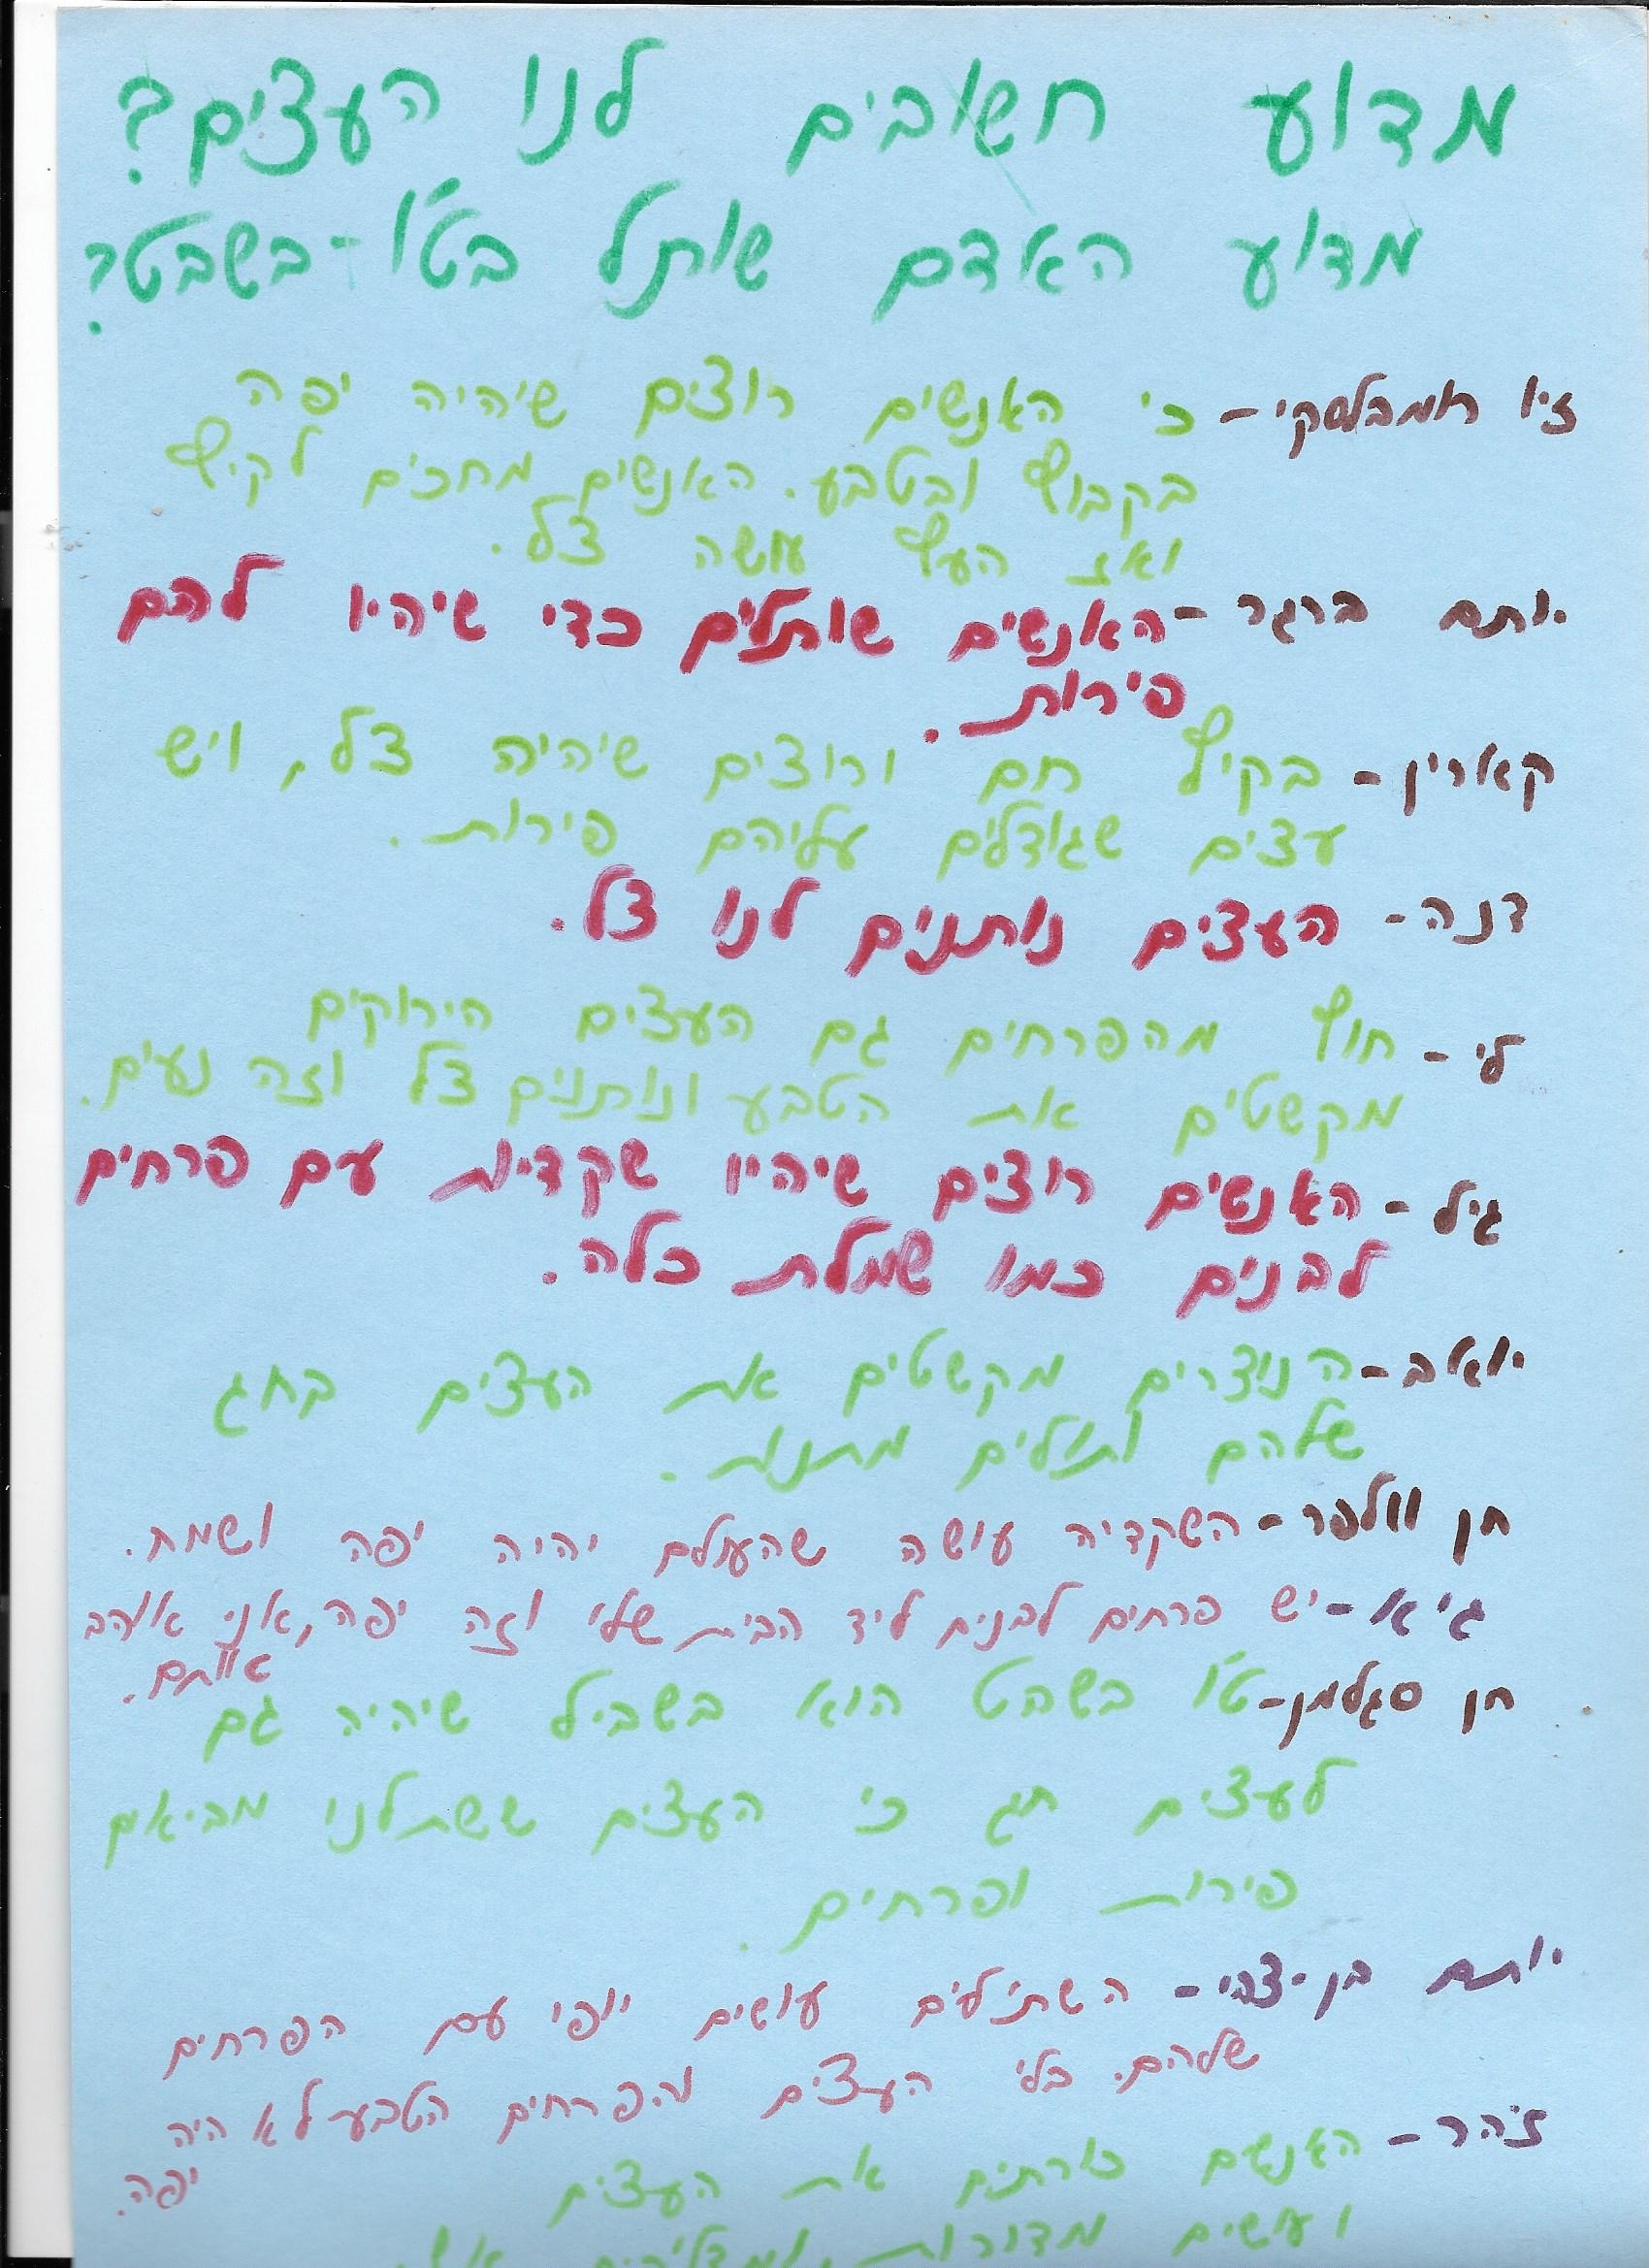 מדוע חשובים לנו העצים?
מדוע האדם שותל בט"ו-בשבט?
זיו רומבלסקי- כי האנשים רוצים שיהיה יפה
בקבוץ ובטבע. האנשים מחכים לקיץ
ואז העץ עושה צל.
יותם ברגר- האנשים שותלים כדי שיהיו להם
פירות.
קארין- בקיץ חם ורוצים שיהיה צל, ויש
עצים שגודלים עליהם פירות.
דנה- העצים נותנים לנו צל.
לי- חוץ מהפרחים גם העצים הירוקים
מקשטים את הטבע ונותנים צל וזה נעים.
גיל- האנשים רוצים שיהיו שקדיות עם פרחים
לבנים כמו שמלת כלה.
יואב- הנוצרים מקשטים את העצים בחג
שלהם ותולים מתנות.
חן וולפר- השקדיה עושה שהעולם יהיה יפה ושמח.
גיא- יש פרחים לבנים ליד הבית שלי וזה יפה, אני אוהב
אותם.
חן סגלמן- ט"ו בשבט הוא בשביל שיהיה גם
לעצים חג כי העצים ששתלנו מביאים
פירות ופרחים.
יותם בן-צבי- השתילים עושים יופי עם הפרחים
שלהם. בלי העצים והפרחים הטבע לא היה
יפה.
זהר- האנשים כורתים את העצים
ועושים מדורות, ומדליקים אש.